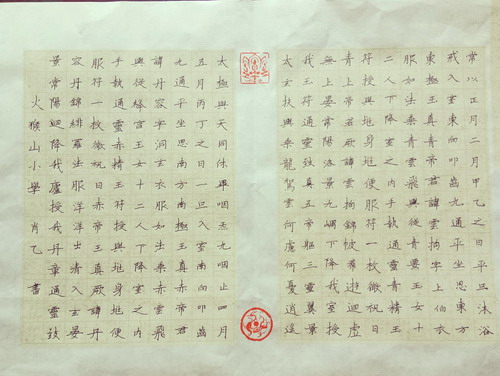 常以正月二月甲乙之日平旦沐浴
戒入室東向叩齒九通平坐思東方
東極玉真青帝君諱雲拘字上伯衣
服如法乘青雲飛輿從青要玉女十
二人下降室之內手執通靈青精玉
符授與地身地便服符一枚微祝曰
青上帝君諱雲拘錦帔青羣遊迴虛
無上晏常陽洛景九嵎下降我室授
我玉符通靈致真五帝軀三靈翼景
太玄扶輿乘龍駕雲何慮何憂逍遙
太極與天同休畢咽炁九咽止四月
五月丙丁之日一旦入室南向叩齒
九通平坐思南方南極玉真赤帝君
諱丹容字洞玄衣服如法乘赤雲飛
輿從絳宮玉女十二人下降室之內
手執通靈赤精玉符授與地身地便
服符一枚微祝曰赤帝玉真厥諱丹
容丹錦緋羅法服洋洋出清入玄晏
景常陽迴降我廬授我丹章通靈致
火猴山小學 肖乙 書